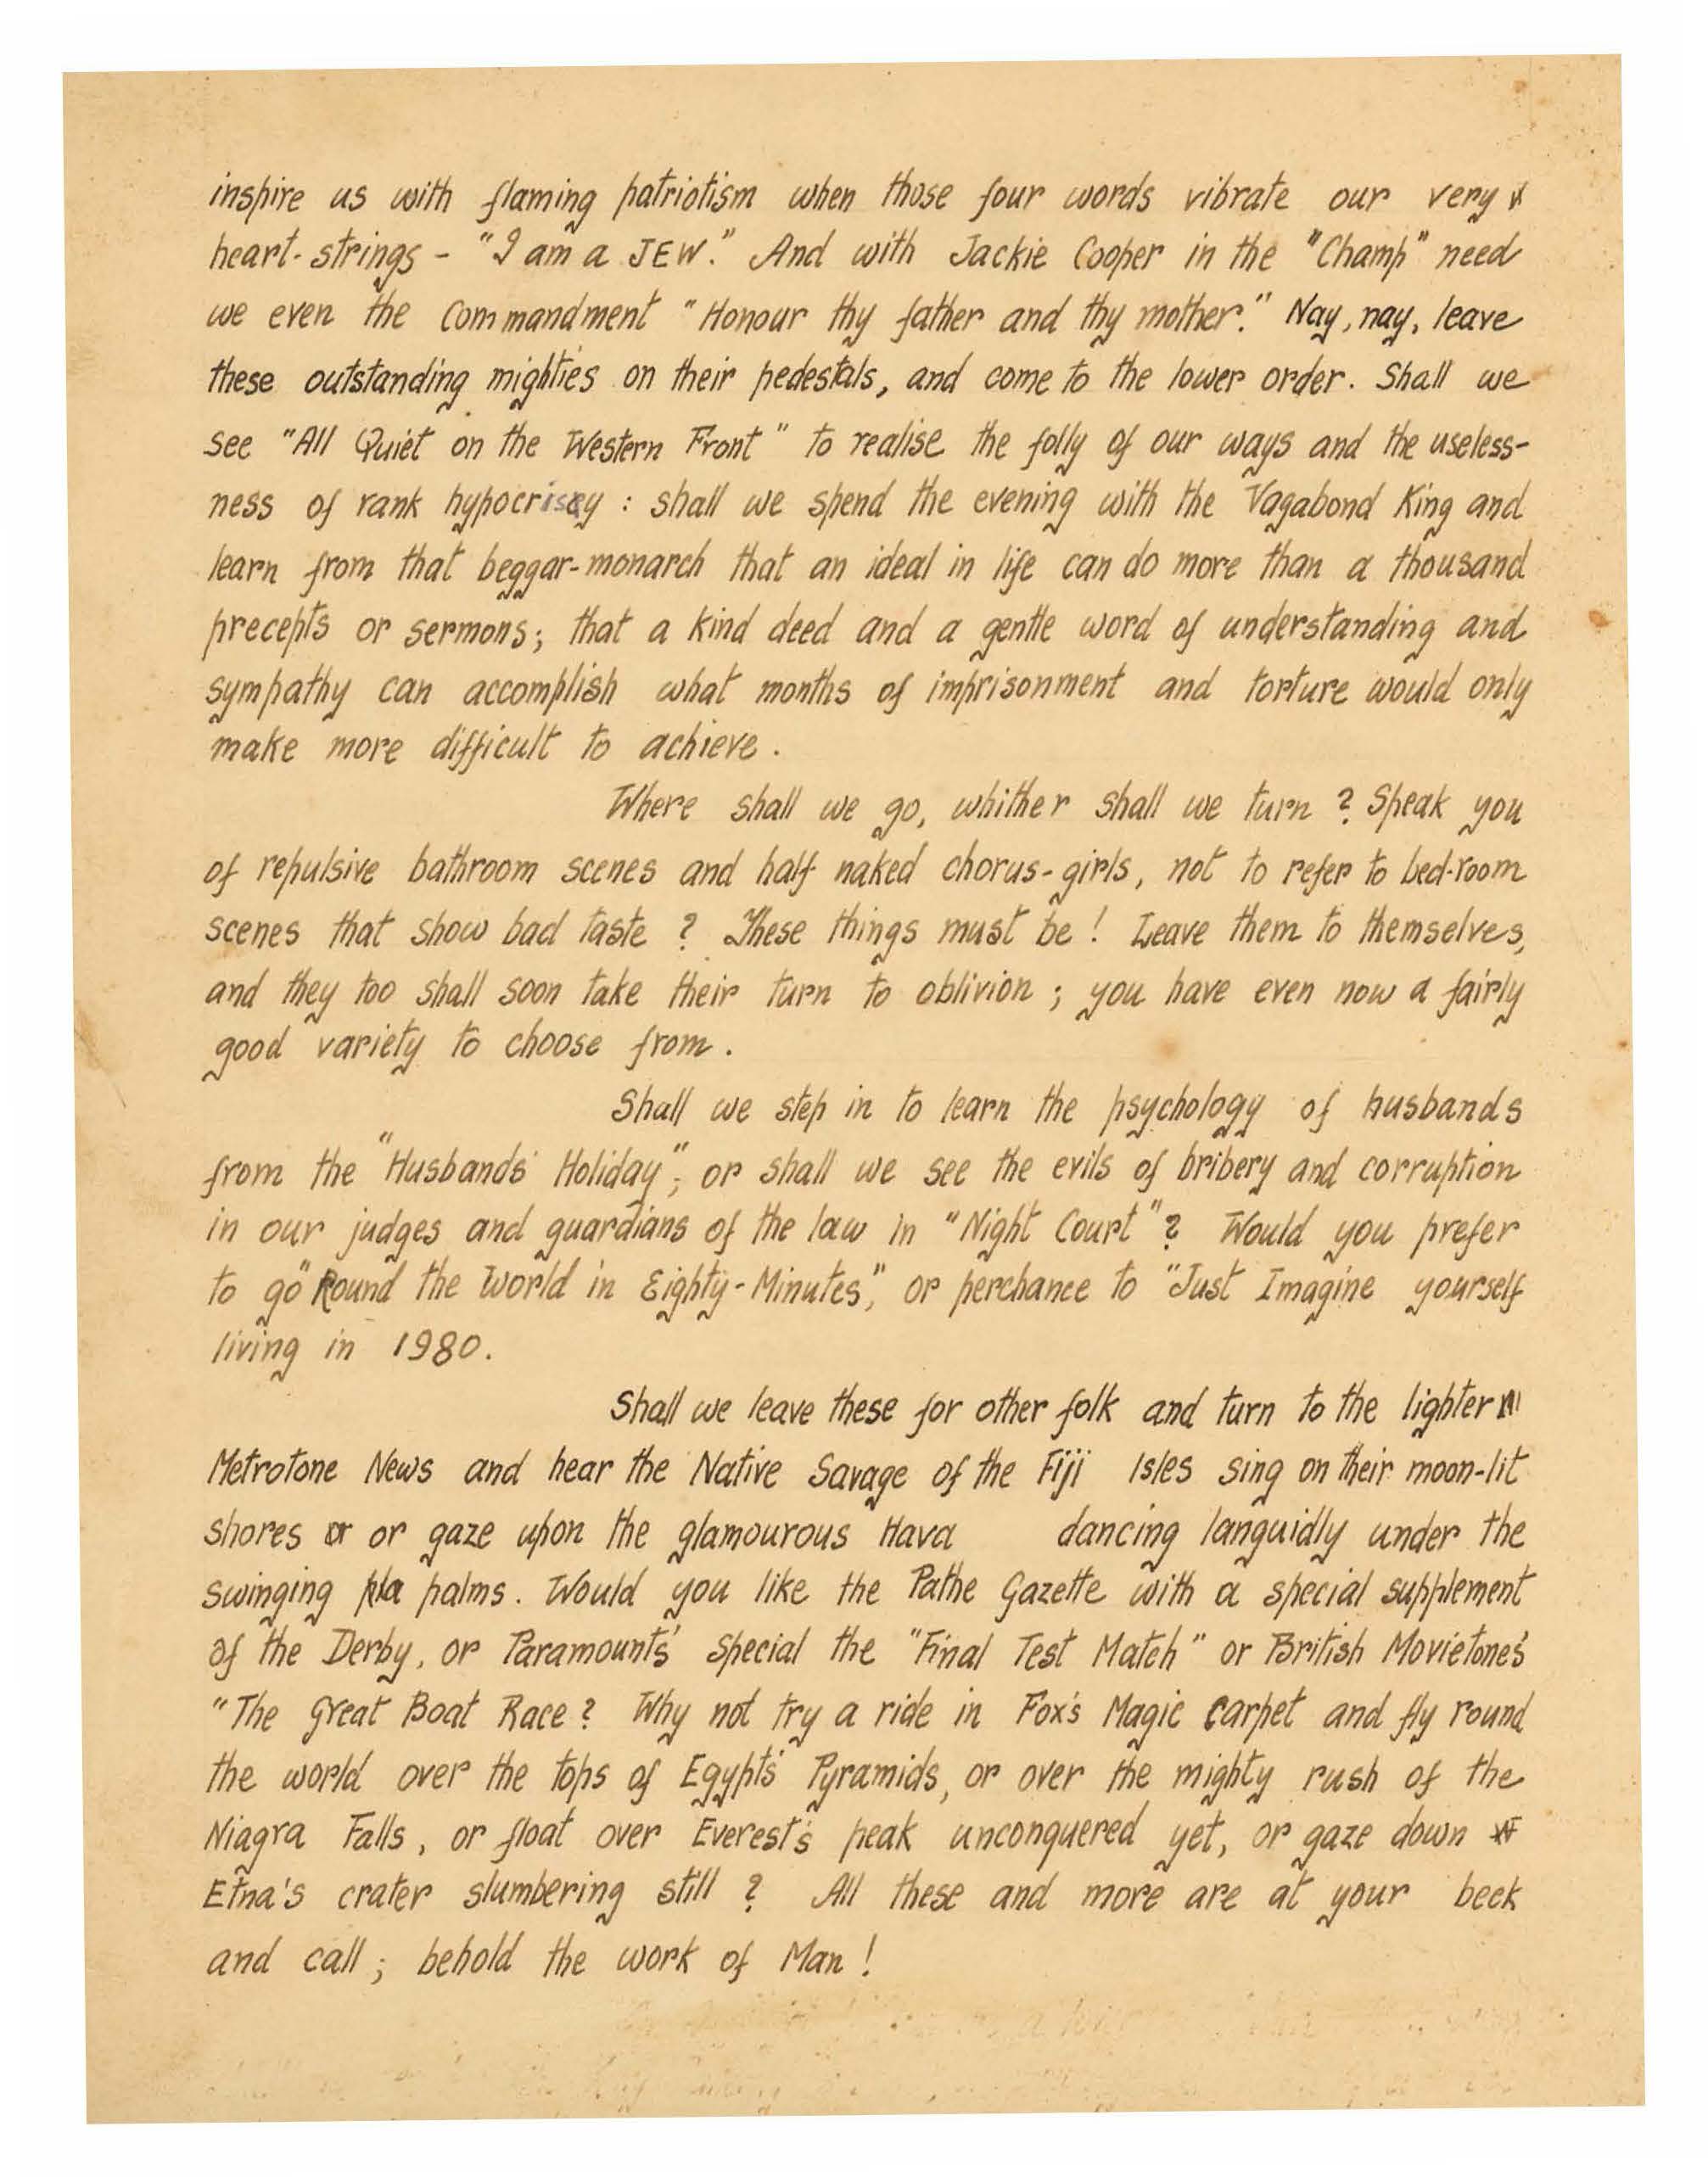 inspire us with flaming patriotism when those four words vibrate our very
heart-strings - "I am a JEW." And with Jackie Cooper in the "Champ" need
we even the Commandment "Honour thy father and thy mother." Nay, nay, leave
these outstanding mighties on their pedestals, and come to the lower order. Shall we
see "All Quiet on the Western Front" to realise the folly of our ways and the useless-
ness of rank hypocrisy : shall we spend the evening with the Vagabond King and
learn from that beggar-monarch that an ideal in life can do more than a thousand
precepts or sermons; that a kind deed and a gentle word of understanding and
sympathy can accomplish what months of imprisonment and torture would only
make more difficult to achieve.
Where shall we go, whither shall we turn ? Speak you
of repulsive bathroom scenes and half naked chorus-girls, not to refer to bed-room
scenes that show bad taste ? These things must be ! Leave them to themselves,
and they too shall soon take their turn to oblivion ; you have even now a fairly
good variety to choose from.
Shall we step in to learn the psychology of husbands
from the "Husbands' Holiday"; or shall we see the evils of bribery and corruption
in our judges and guardians of the law in "Night Court"? Would you prefer
to go "Round the World in Eighty-Minutes," or perchance to "Just Imagine yourself
living in 1980.
Shall we leave these for other folk and turn to the lighter
Metrotone News and hear the Native Savage of the Fiji Isles sing on their moon-lit
shores or or gaze upon the glamourous Hava dancing languidly under the
swinging pla palms. Would you like the Pathe Gazette with a special supplement
of the Derby, or Paramounts' Special the "Final Test Match" or British Movietone's
"The Great Boat Race ? Why not try a ride in Fox's Magic Carpet and fly round
the world over the tops of Egypt's Pyramids, or over the mighty rush of the
Niagra Falls, or float over Everest's peak unconquered yet, or gaze down
Etna's crater slumbering still ? All these and more are at your beck
and call ; behold the work of Man !